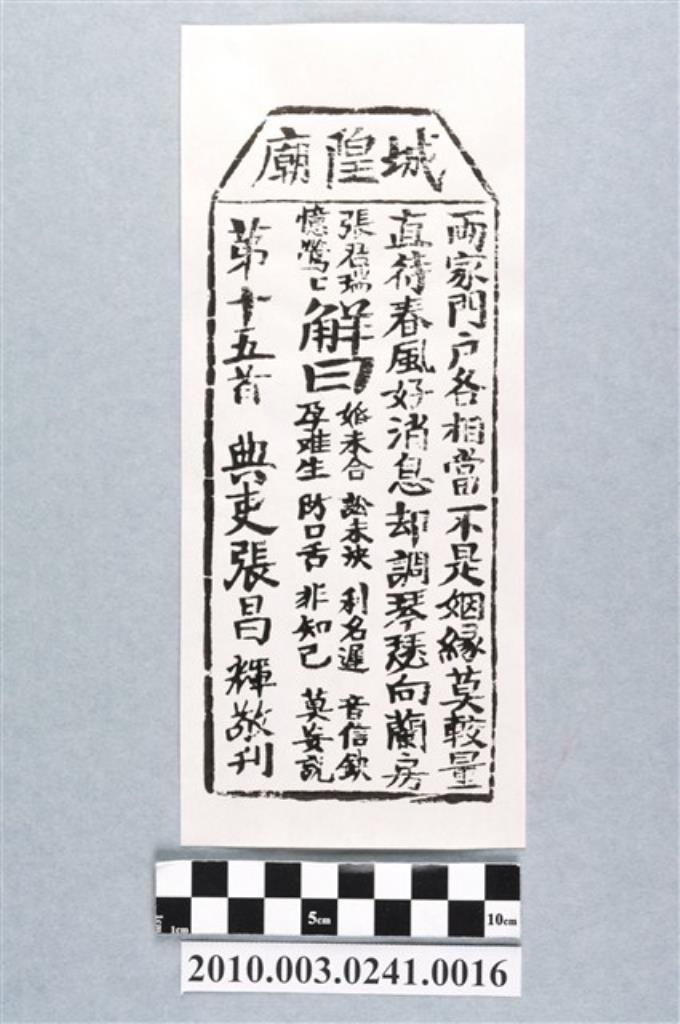 城隍廟
両家門户各相當不是姻緣莫較量
直待春風好消息却調琴瑟向蘭房
張君瑞
憶鶯々
解曰
婚未合 訟未决 利名遲 音信缺
孕难生 防口舌 非知己 莫妄說
第十五首 典吏張昌輝敬刊
5cm
10cm
1cm
2010.003.0241.0016